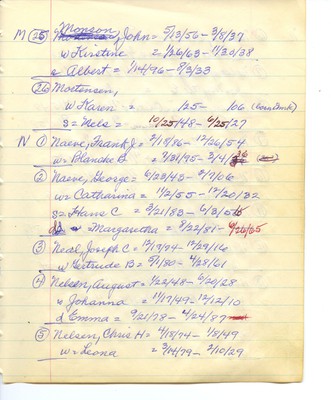 Monson
M (25) John = 5/13/56 - 3/8/37
w Kirstine = 1/26/63 - 11/30/38
s Albert = 1/14/96 - 8/3/33
(26) Mortensen,
w Karen = 125- 106 (born Denmk)
s = Nels = 10/25/48 - 6/25/27
N (1) Naeve, Frank J = 2/18/86 - 12/26/54
w = Blanche B = 7/31/95 - 3/4/36
(2) Naeve, George = 6/23/43 - 2/7/06
w = Catharina = 11/2/55 - 12/20/32
s = Hans C = 3/21/83 - 6/3/51
d = Margaretha = 8/22/81 - 6/26/65
(3) Neal, Joseph C = 12/13/74 - 12/29/16
w Gertrude B = 9/1/80 - 4/28/61
(4) Nelsen, August = 1/22/48 - 6/20/28
w Johanna = 11/17/49 - 12/12/10
d Emma = 9/21/78 - 4/24/87
(5) Nelsen, Chris H = 4/18/74 - 1/8/49
w = Leona = 3/14/79 - 2/10/29